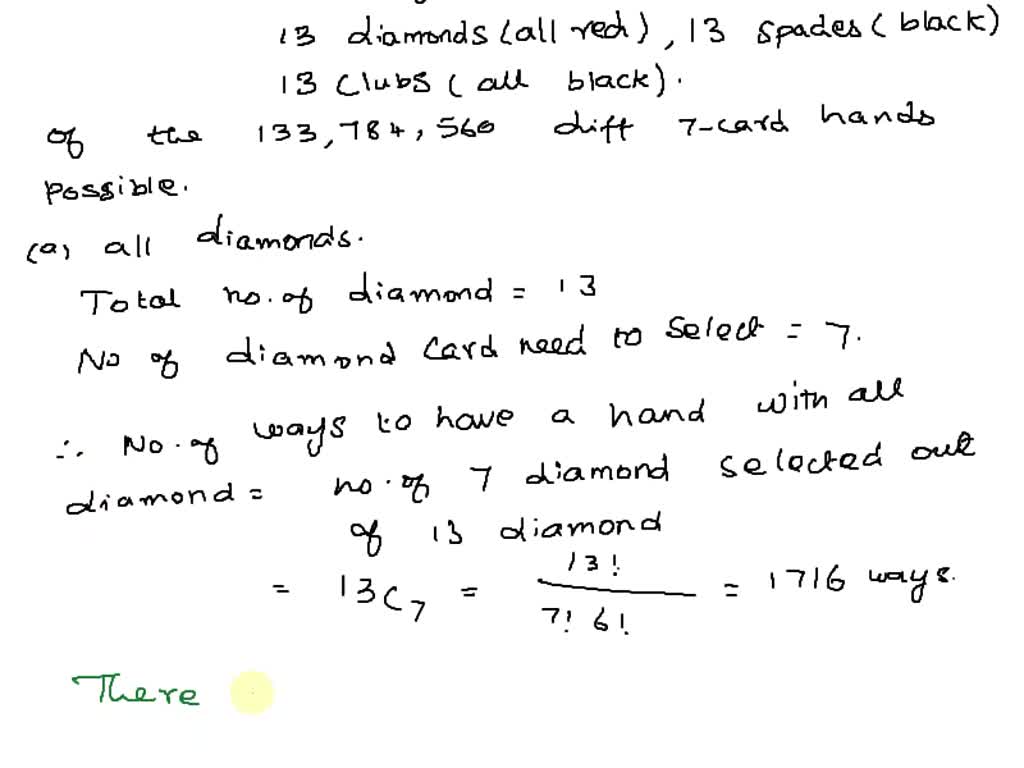 13 diamonds (all red), 13 spades (black)
13 Clubs (all black).
of the 133,784,560 diff 7-card hands
possible.
(a) all diamonds.
Total no. of diamond = 13
No of diamond card need to select = 7.
∴ No. of ways to have a hand with all
diamond = no. of 7 diamond selected out
of 13 diamond
= 13C7 = 13! / 7! 6! = 1716 ways.
There